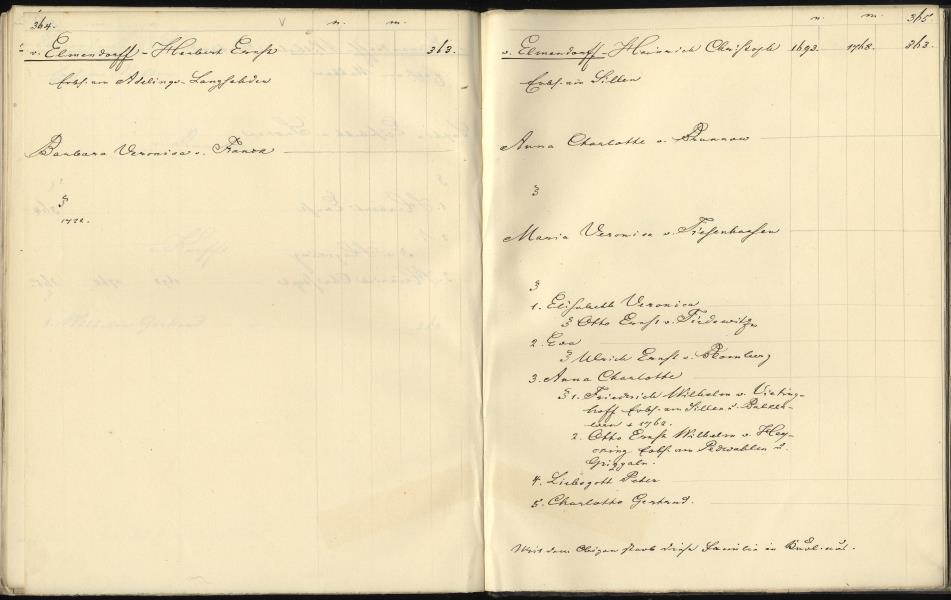 364.
n. m.
v. Elmendorff-Herbert Ernst 363.
Erbh. auf Adelings-Langsehden
Barbara Veronica v. Franck
§
1722.
n. m. 365
v. Elmendorff-Heinrich Christoph 1693. 1768. 363.
Erbh. auf Sillen
Anna Charlotte v. Brunnow
§
Maria Veronica v. Tiesenhausen
§
1. Elisabeth Veronica
§ Otto Ernst v.
2. Eva
§ Ulrich Ernst v. Romberg
3. Anna Charlotte
§ 1. Friedrich Wilhelm v. Vieting-
hoff Erbh. auf Sillen u.
1762.
2. Otto Ernst Wilhelm v. Hey-
cking Erbh. auf Padwahlen u.
Griggaln.
4. Liebegott Peter
5. Charlotte Gertrud.
Mit dem Obigen starb diese Familie in Kurl. aus.